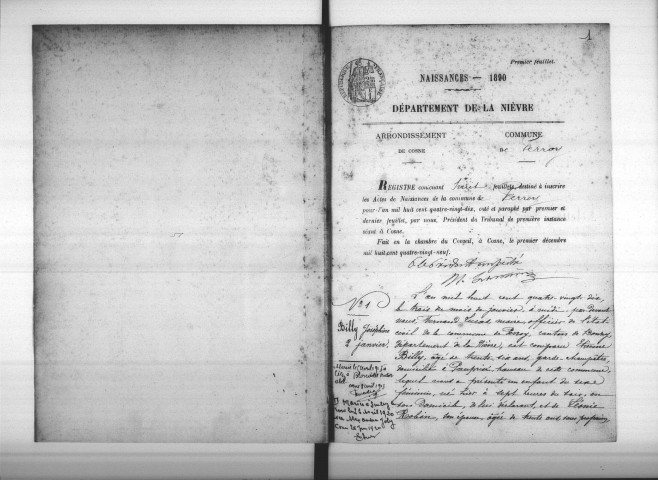 1
Premier feuillet.
NAISSANCES — 1890
DÉPARTEMENT DE LA NIÈVRE
ARRONDISSEMENT
DE COSNE
COMMUNE
DE Perroy
REGISTRE contenant huit feuillets, destiné à inscrire
les Actes de Naissances de la commune de Perroy
pour l'an mil huit cent quatre-vingt-dix, coté et paraphé par premier et
dernier feuillet, par nous, Président du Tribunal de première instance
séant à Cosne.
Fait en la chambre du Conseil, à Cosne, le premier décembre
mil huit cent quatre-vingt-neuf.
Le Président
N° 1
Billy Joséphine
2 janvier.
L'an mil huit cent quatre-vingt dix,
le trois du mois de janvier, à midi, par devant
nous, maire officier de l'état
civil de la commune de Perroy, canton de Donzy,
département de la Nièvre, est comparu Étienne
Billy, âgé de trente six ans, garde-champêtre,
domicilié à hameau de cette commune,
lequel nous a présenté un enfant du sexe
féminin, né hier à sept heures du soir, en
son domicile, de lui déclarant, et de
son épouse, âgée de trente ans, sans profession